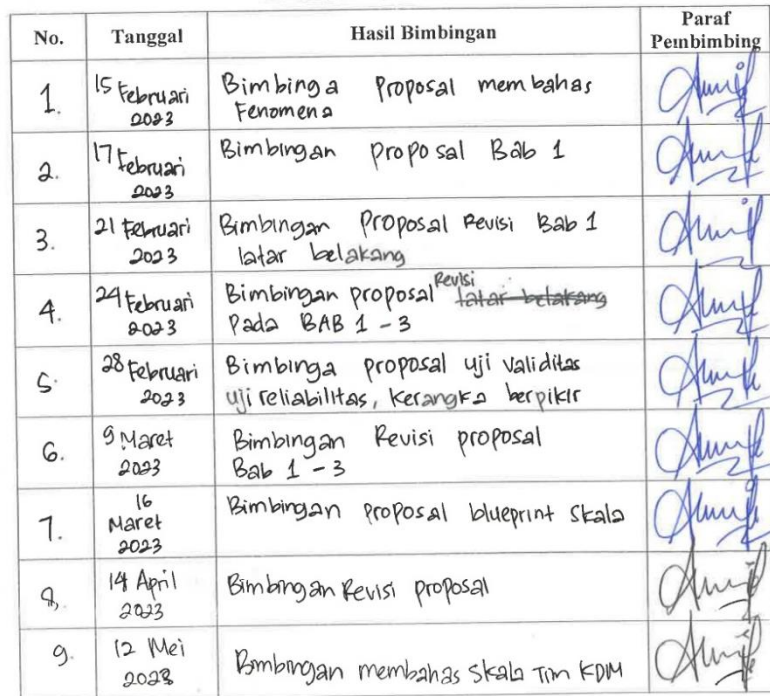 No. Tanggal Hasil Bimbingan Paraf Pembimbing
1. 15 Februari 2023 Bimbinga Proposal membahas
Fenomena
2. 17 Februari 2023 Bimbingan proposal Bab 1
3. 21 Februari 2023 Bimbingan Proposal Revisi Bab 1
latar belakang
4. 24 Februari 2023 Bimbingan proposal Revisi latar belakang
Pada BAB 1 - 3
5. 28 Februari 2023 Bimbinga proposal uji validitas
uji reliabilitas, kerangka berpikir
6. 9 Maret 2023 Bimbingan Revisi proposal
Bab 1 - 3
7. 16 Maret 2023 Bimbingan proposal blueprint skala
8. 14 April 2023 Bimbingan Revisi proposal
9. 12 Mei 2023 Bimbingan membahas skala Tim KDM